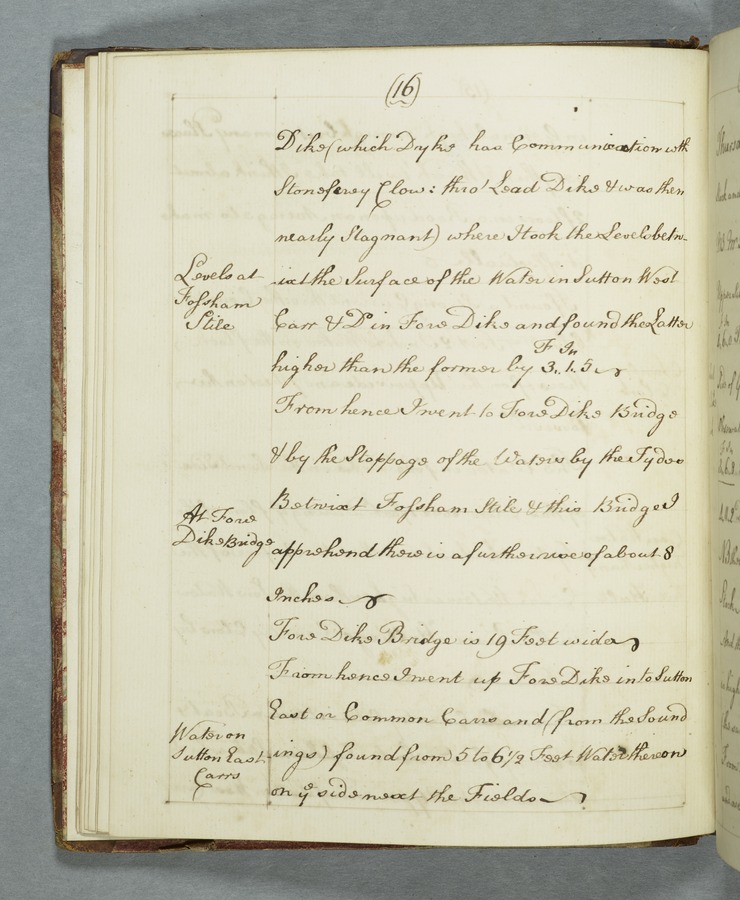 (16)
Dike (which Dyke has Communication with
Stoneferrey Clow: thro' Lead Dike & was then
nearly Stagnant) where I took the Levels betw-
Levels at
Fossham
Stile
-ixt the Surface of the Water in Sutton West
Carr & Do. in Fore Dike and found the Latter
F In
higher than the former by 3,, 1. 5
From hence I went to Fore Dike Bridge
& by the Stoppage of the Waters by the
Betwixt Fossham Stile & this Bridge I
At Fore
Dike Bridge
apprehend there is a further rise of about 8
Inches
Fore Dike Bridge is 19 Feet wide
From hence I went up Fore Dike into Sutton
East or Common Carrs and (from the Sound
Water on
Sutton East
Carrs
ings) found from 5 to 6 1/2 Feet Water thereon
on ye side next the Fields